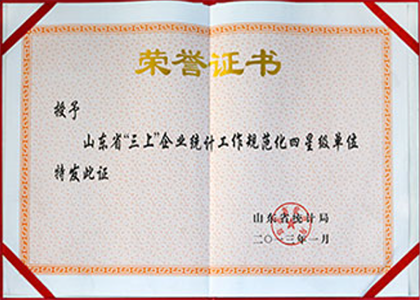 荣誉证书
授予
山东省“三上”企业统计工作规范化四星级单位
特发此证
山东省统计局
二〇一三年一月